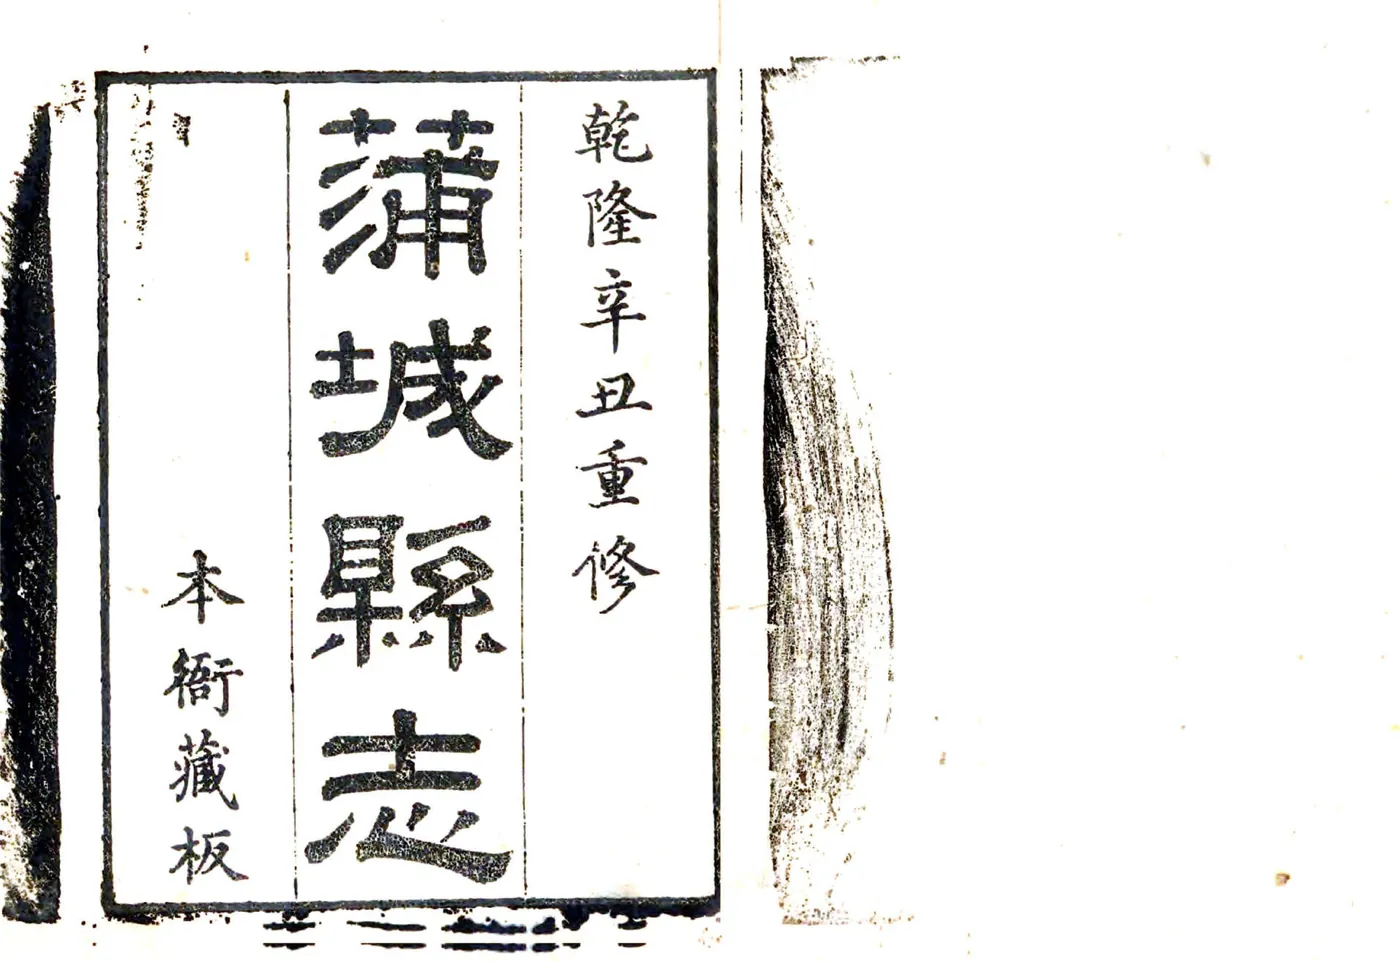 乾隆辛丑重修
蒲城縣志
本衙藏板